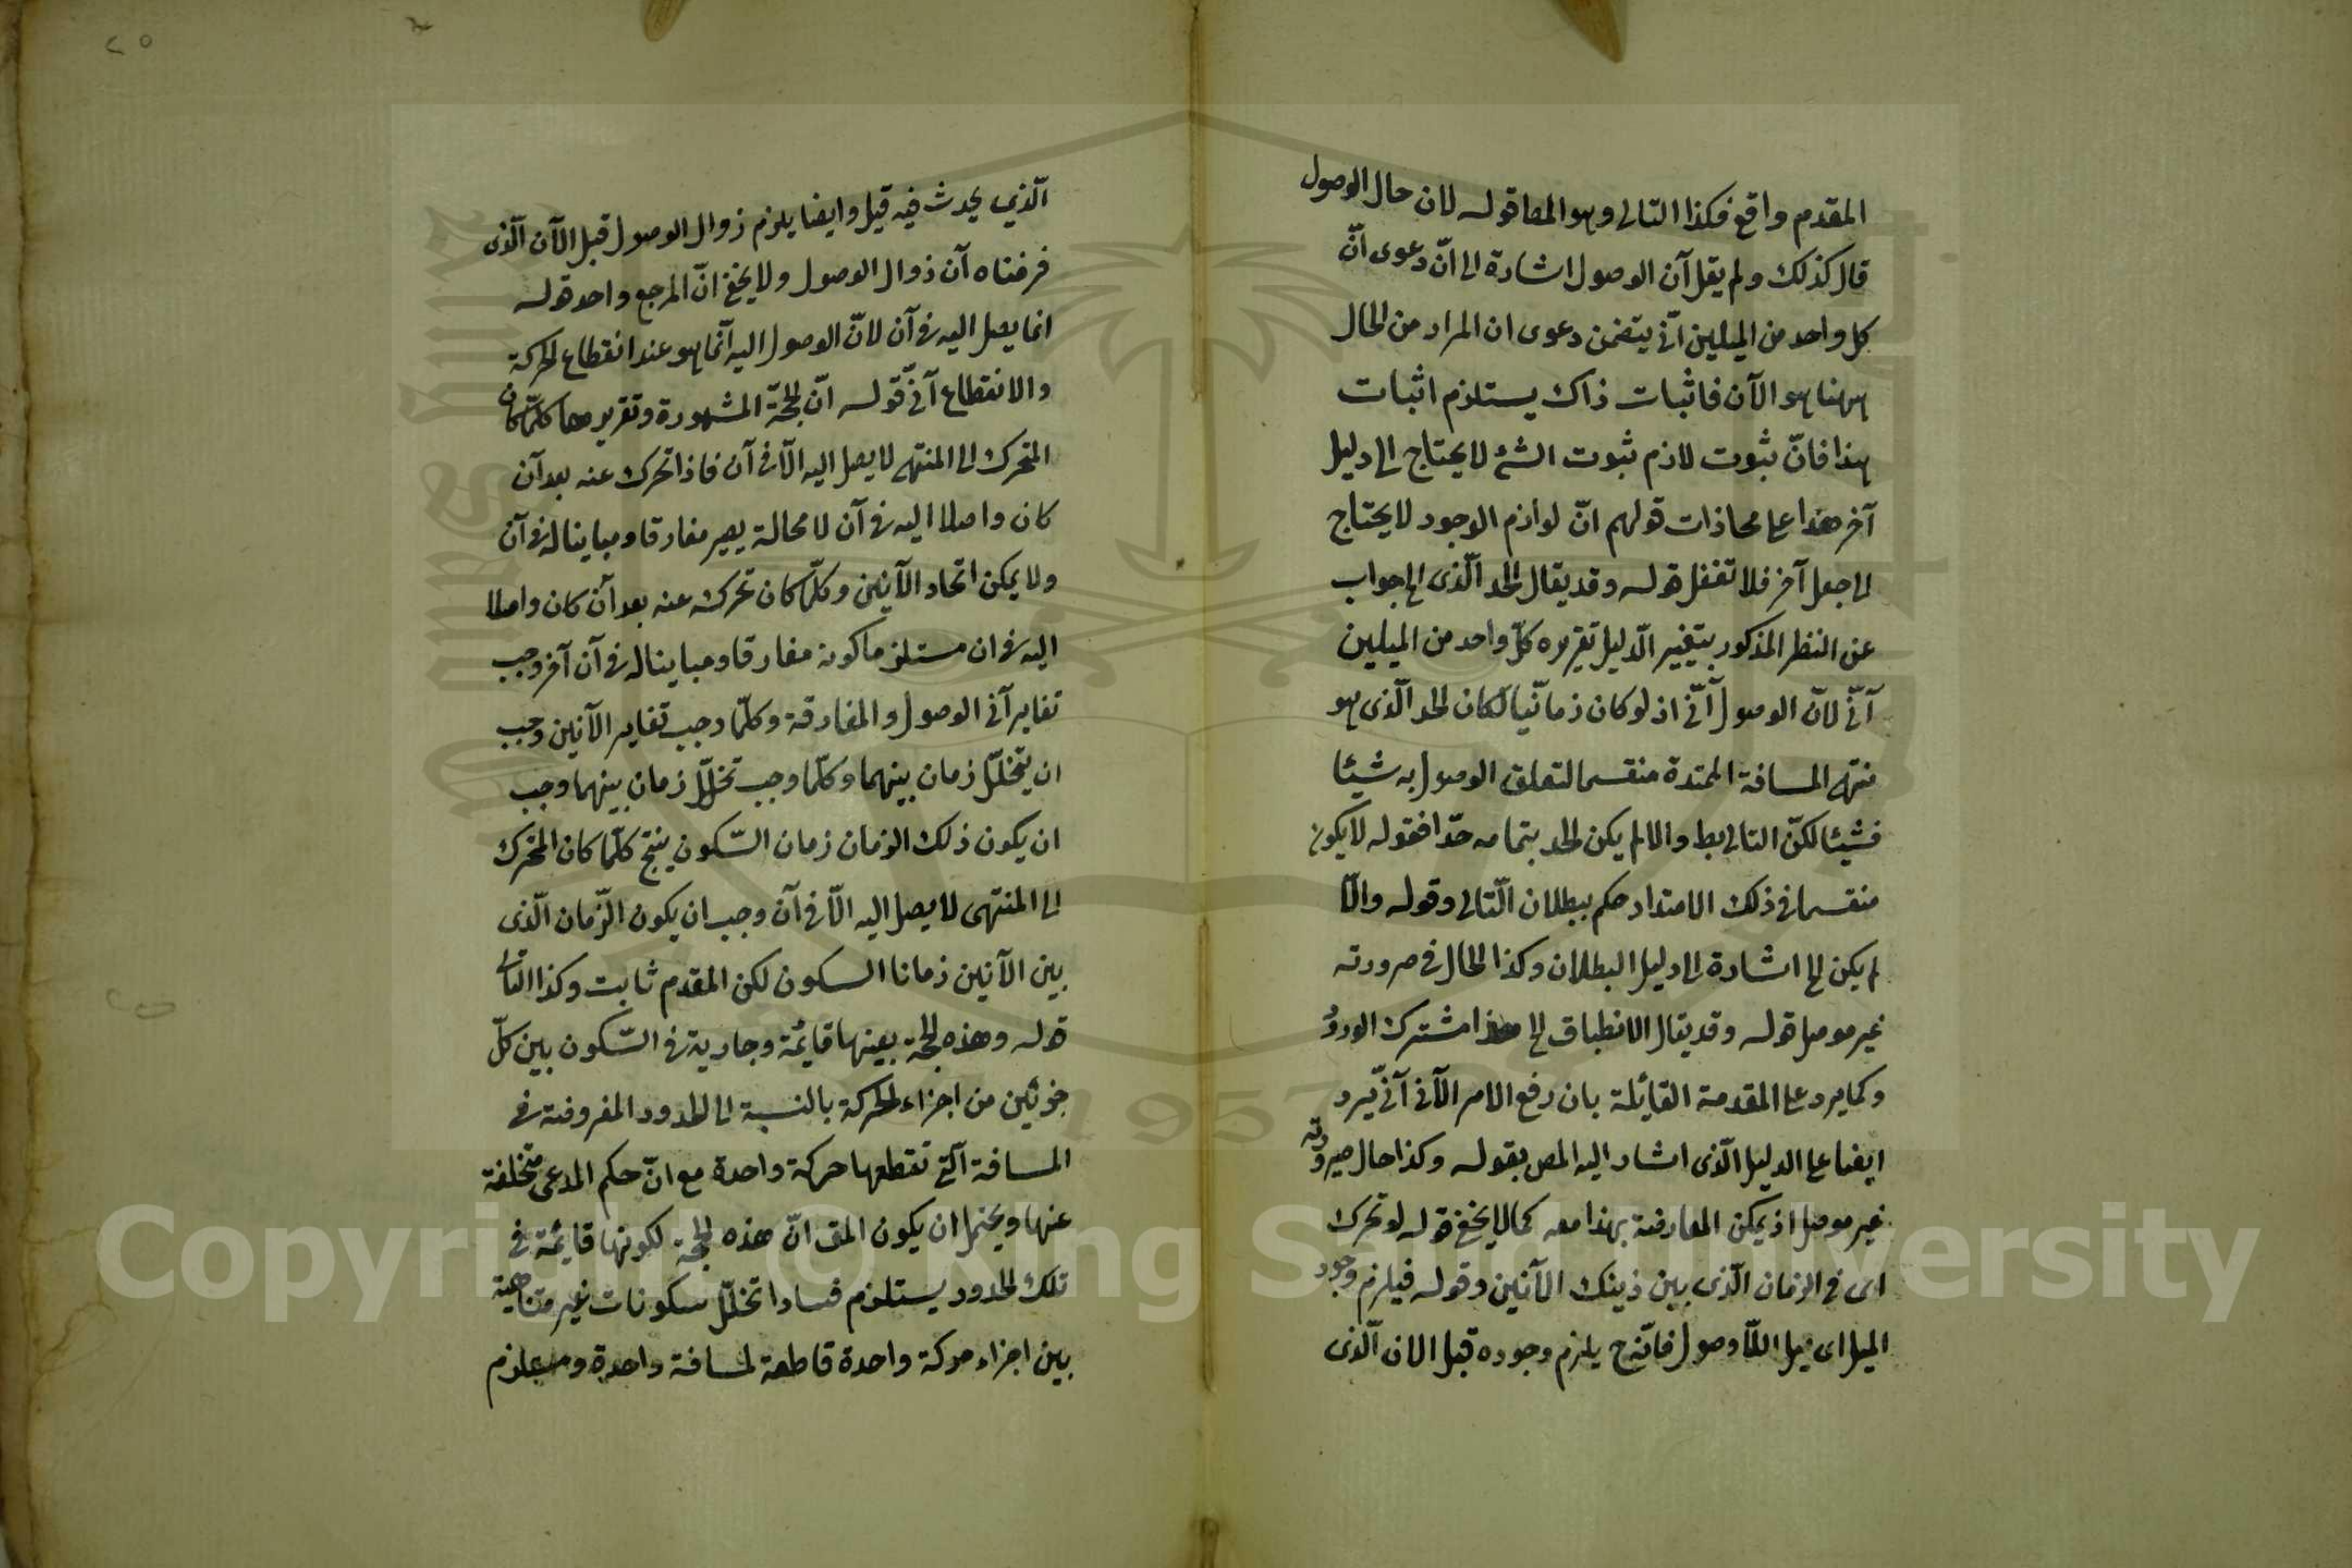 المقدم واقع فكذا التالى وهو المط قوله لان حال الوصول
قال كذلك ولم يقل آن الوصول اشارة الى انّ دعوى انّ
كل واحد من الميلين آنى يتضمن دعوى ان المراد من الحال
ههنا هو الآن فاثبات ذاك يستلزم اثبات
هذا فانّ ثبوت لازم ثبوت الشئ لا يحتاج الى دليل
آخر هذا على محاذات قولهم انّ لوازم الوجود لا يحتاج
الى جعل آخر فلا تغفل قوله وقد يقال الحد الّذى الخ جواب
عن النظر المذكور بتغيير الدّليل تقريره كلّ واحد من الميلين
آنىّ لانّ الوصول آنىّ اذ لو كان زمانّيا لكان الحد الّذى هو
منتهى المسافة الممتدة منقسما لتعلق الوصول به شيئا
فشيئا لكنّ التالى بط والا لم يكن الحد بتمامه حدّا فقوله لا يكون
منقسما فى ذلك الامتداد حكم ببطلان التّالى وقوله والّا
لم يكن الخ اشارة الى دليل البطلان وكذا الحال فى صرورته
غير موصل قوله وقد يقال الانطباق الخ هذا مشترك الورودُ
وكما يرد على المقدمة القائلة بان رفع الامر الآنى آنىّ يرد
ايضا على الدليل الّذى اشار اليه المص بقوله وكذا حال صيرورته
غير موصل اذ يمكن المعارضة بهذا معه كما لا يخفى قوله لو تحرك
اى فى الزمان الّذى بين ذينك الآنين وقوله فيلزم وجود
الميل اى ميل اللّا وصول فانّه ح يلزم وجوده قبل الان الّذى
٢٥
الّذي يحدث فيه قيل وايضا يلزم زوال الوصول قبل الآن الّذى
فرضناه آن زوال الوصول ولا يخفى انّ المرجع واحد قوله
انما يصل اليه فى آن لانّ الوصول اليه انّما هو عند انقطاع الحركة
والانقطاع آنىّ قوله انّ الحجّة المشهورة وتقريرها كلّما كان
المتحرك الى المنتهى لا يصل اليه الّا فى آن فاذا تحرك عنه بعد آن
كان واصلا اليه فى آن لا محالة يصير مفارقا ومباينا له فى آن
ولا يمكن اتحاد الآنين وكلّما كان تحركه عنه بعد آن كان واصلا
اليه فى ان مستلزما كونه مفارقا ومباينا له فى آن آخر وجب
تغاير آنى الوصول والمفارقة وكلّما وجب تغاير الآنين وجب
ان يتخلّل زمان بينهما وكلّما وجب تخلّل زمان بينهما وجب
ان يكون ذلك الزمان زمان السّكون ينتج كلّما كان المتحرك
الى المنتهى لا يصل اليه الّا فى آن وجب ان يكون الزّمان الّذى
بين الآنين زمانا السكون لكن المقدم ثابت وكذا التالى
قوله وهذه الحجة بعينها قائمة وجارية فى السّكون بين كلّ
جزئين من اجزاء الحركة بالنسبة الى الحدود المفروضة فى
المسافة الّتى تقطعها حركة واحدة مع انّ حكم المدعى متخلفة
عنها ويحتمل ان يكون المق انّ هذه الحجة لكونها قائمة فى
تلك الحدود يستلزم فسادا تخلّل سكونات غير متناهية
بين اجزاء حركة واحدة قاطعة لمسافة واحدة
Copyright © King Saud University
1957